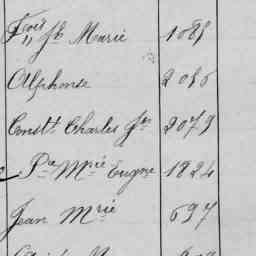 Fçois Jh Marie 1085
Alphonse 2056
Constt. Charles Jh 2079
Pre Mrie Eugne 1824
Jean Mrie 697